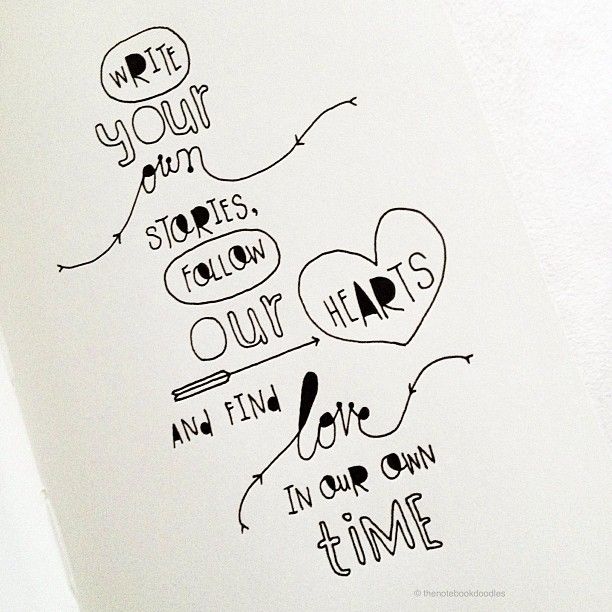 WRITE
your
own
STORIES,
FOLLOW
our HEARTS
AND FIND love
IN OUR OWN
tiME
© thenotebookdoodles